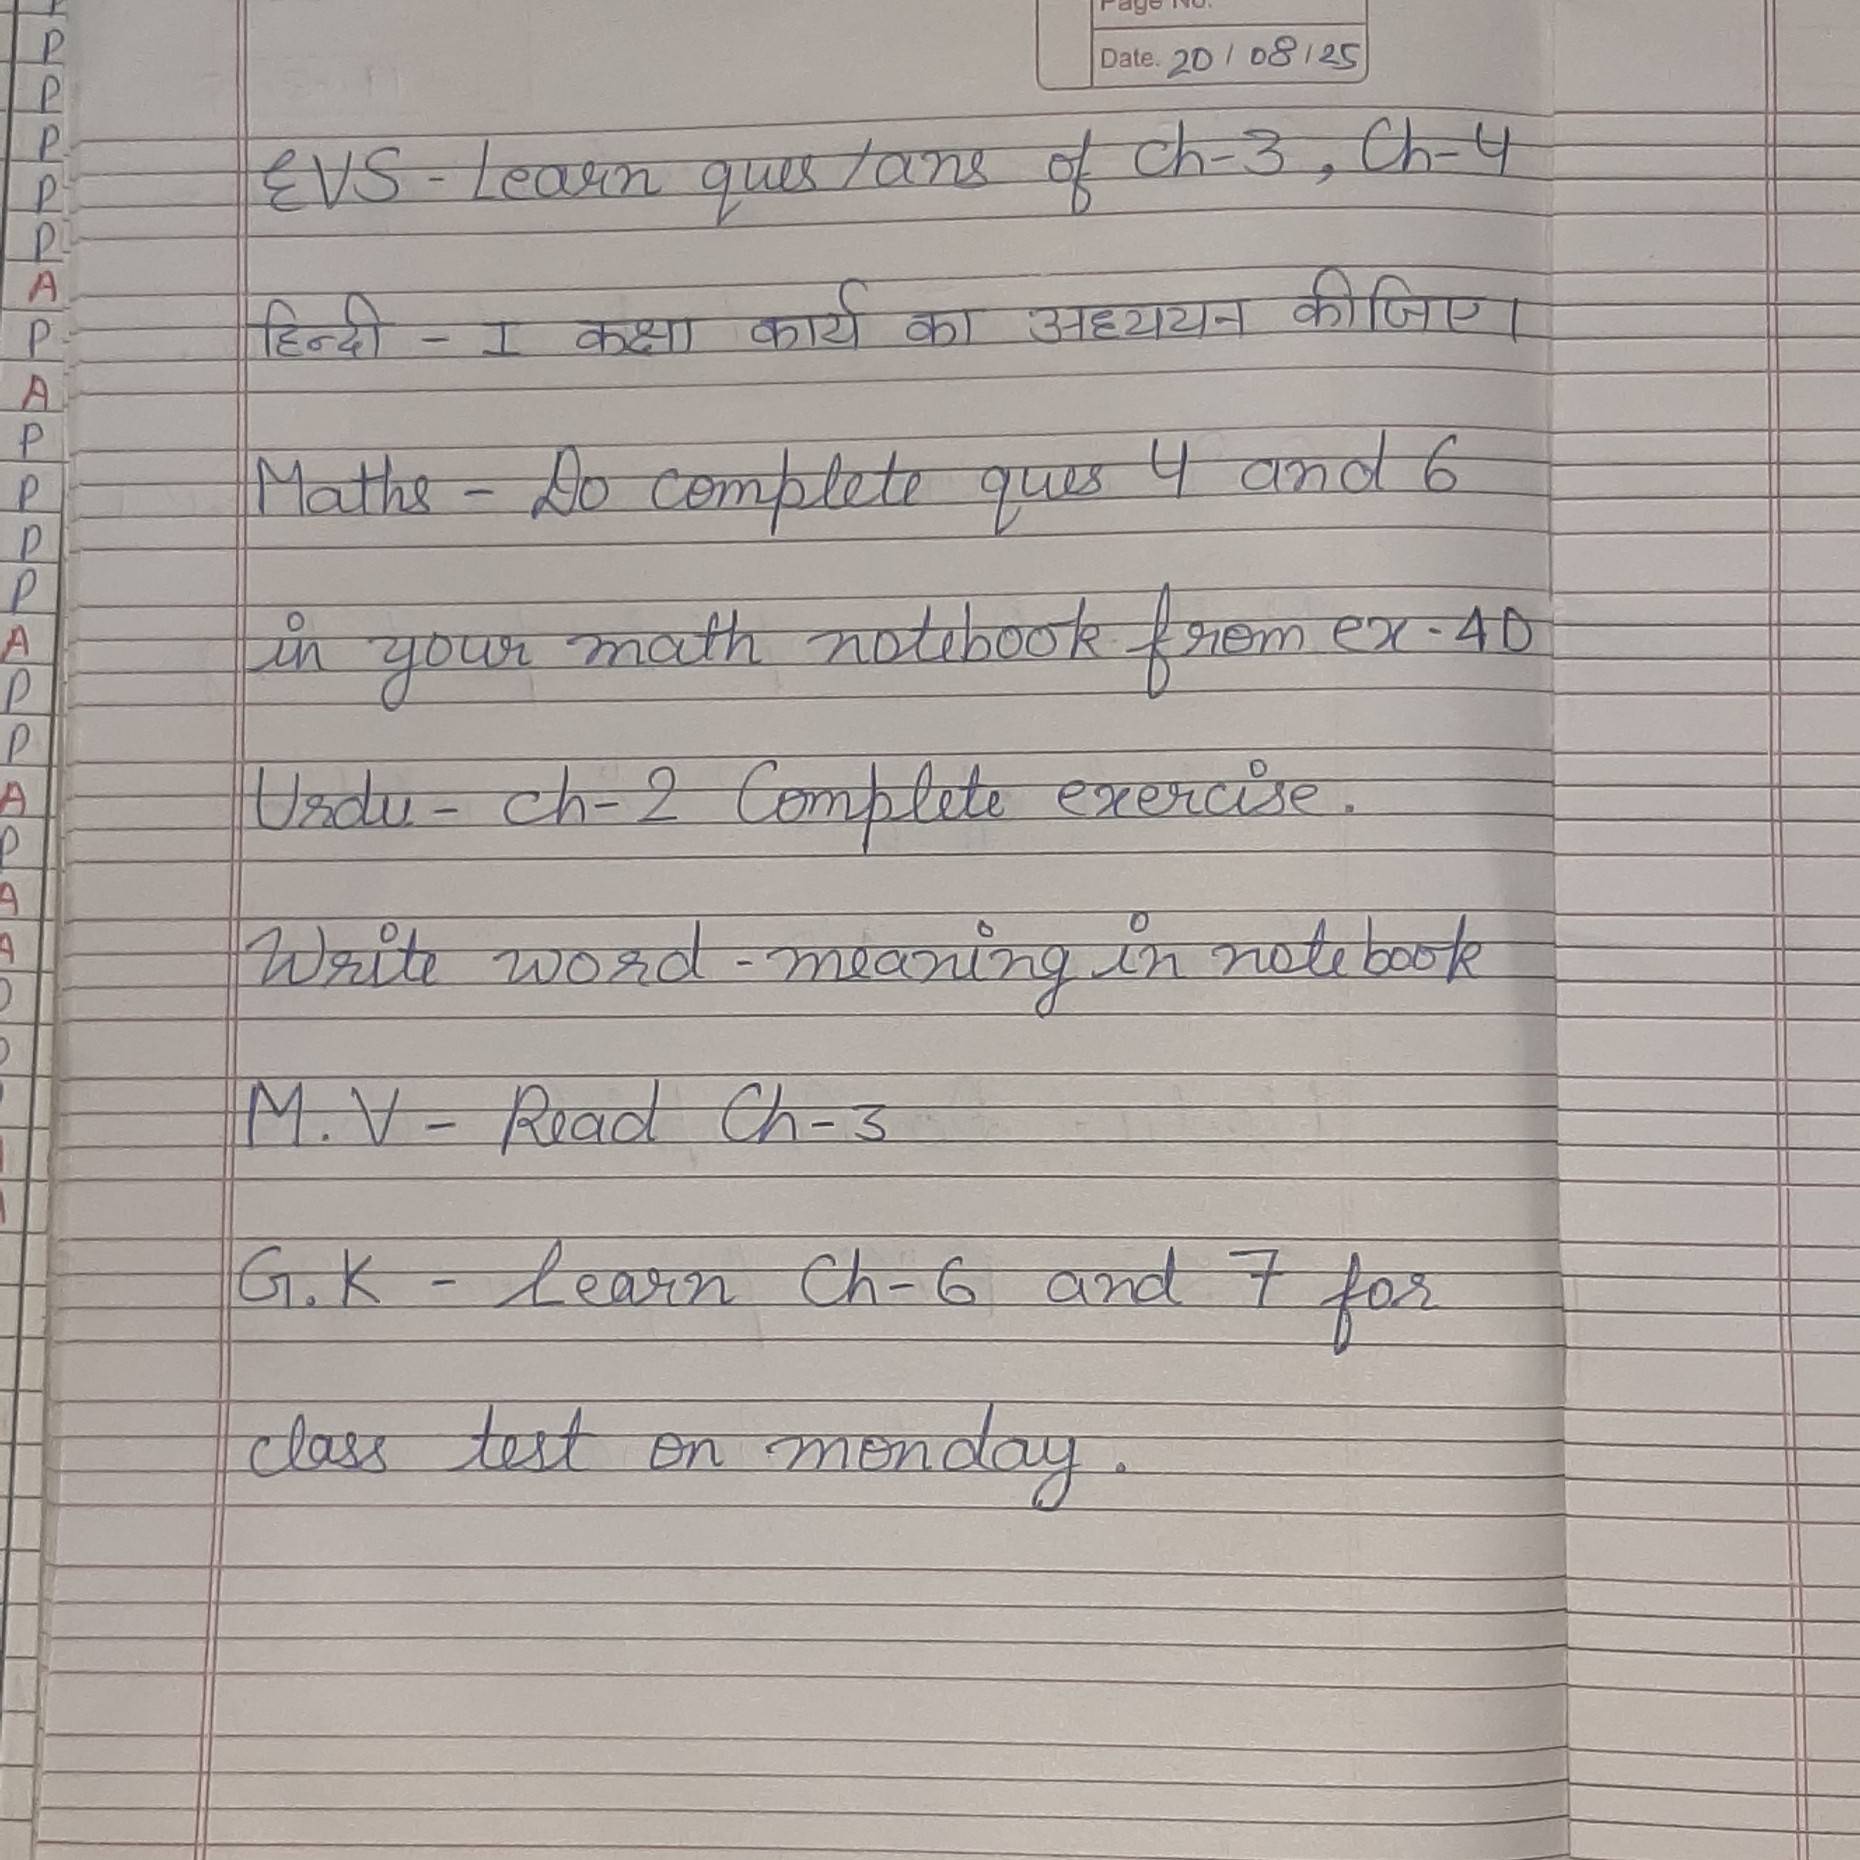 Page No.
Date. 20/08/25
EVS - Learn ques/ans of Ch-3, Ch-4
हिन्दी - I कक्षा कार्य का अध्ययन कीजिए।
Maths - Do complete ques 4 and 6
in your math notebook from ex-4D
Urdu - Ch-2 Complete exercise.
Write word-meaning in notebook
M.V - Read Ch-3
G.K - Learn Ch-6 and 7 for
class test on monday.
P
P
P
P
P
A
P
A
P
P
P
P
A
P
P
A
P
A
A